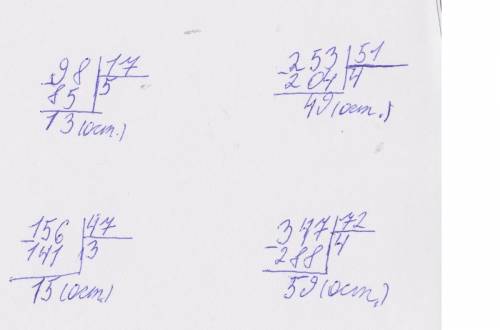 98 | 17
85 | 5
13 (ост.)
253 | 51
204 | 4
49 (ост.)
156 | 47
141 | 3
15 (ост.)
347 | 72
288 | 4
59 (ост.)